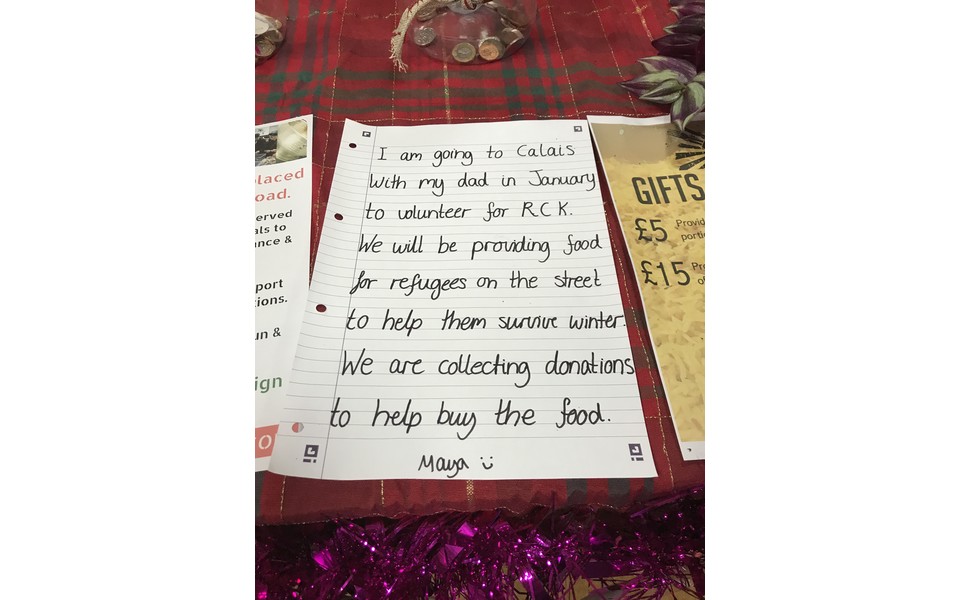 I am going to Calais
with my dad in January
to volunteer for R.C.K.
We will be providing food
for refugees on the street
to help them survive winter.
We are collecting donations
to help buy the food.
Maya
placed
oad.
served
als to
ance &
port
tions.
un &
ign
GIFTS
£5 Provid
porti
£15 Pr